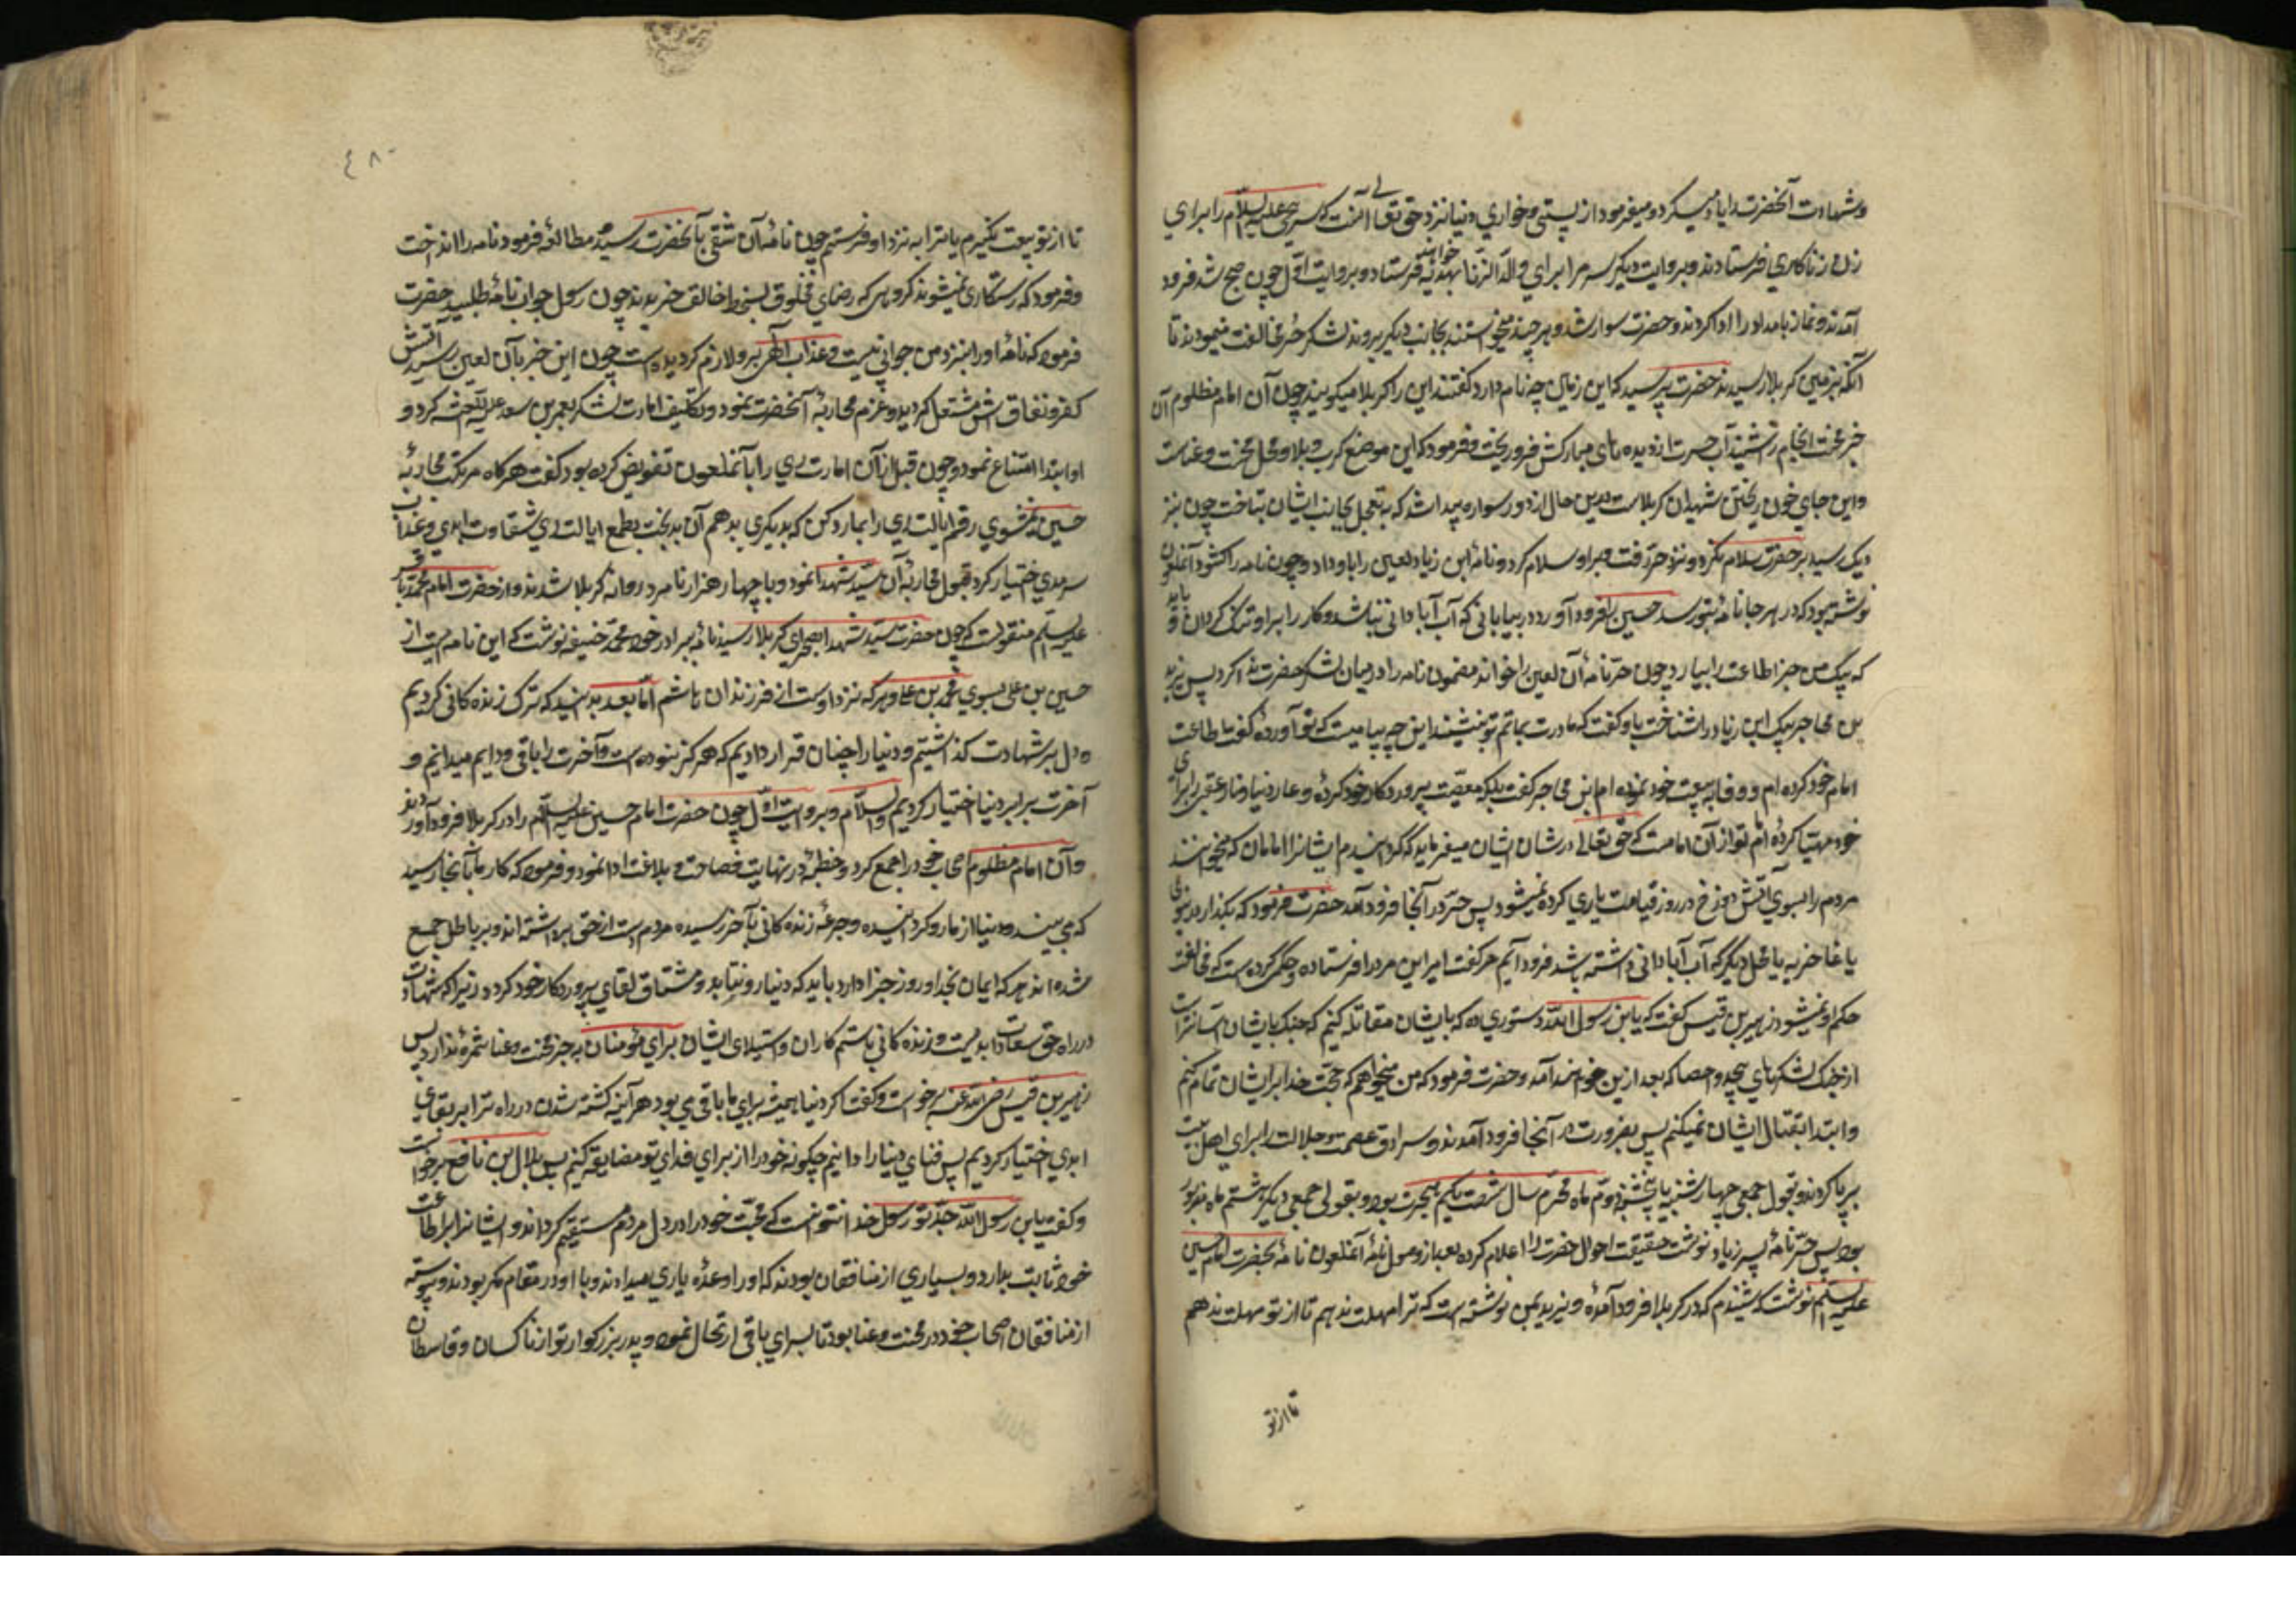 وشهادت آنحضرت را یاد میکرد و میفرمود از پستی و خواری دنیا نزد حق تعالی آنست که سر یحیی علیه السلام را برای
زن زناکاری فرستادند و بروایت دیگر سر مرا برای ولد الزنا بهدیه خواهند فرستاد و بروایت اول چون صبح شد فرود
آمدند و نماز بامداد را ادا کردند و حضرت سوار شد و هر چند میخواستند بجانب دیگر بروند لشکر حر مخالفت مینمودند تا
آنکه بزمین کربلا رسیدند حضرت پرسید که این زمین چه نام دارد گفتند این را کربلا میگویند چون آن امام مظلوم آن
خبر محنت انجام را شنید آب حسرت از دیده های مبارکش فرو ریخت و فرمود که این موضع کرب و بلا و محل محنت و عناست
و این جای خون ریختن شهیدان کربلاست درین حال از دور سواره پیدا شد که بتعجیل بجانب ایشان بتاخت چون نیز
دیک رسید بر حضرت سلام نکرد و نزد حر رفت و بر او سلام کرد و نامه ابن زیاد لعین را باو داد و چون نامه را کشود آنملعون
نوشته بود که در هر جا نامه بتو رسد حسین را فرود آور در بیابانی که آب آبادانی نباشد و کار را بر او تنک کردان و باید
که پیک من خبر اطاعت را بیارد چون حر نامه آن لعین را خواند مضمون نامه را در میان لشکر حضرت ندا کرد پس یزید
بن مهاجر پیک ابن زیاد را شناخت باو گفت که مادرت بماتم تو بنشیند این چه پیامیست که تو آورده گفت اطاعت
امام خود کرده ام و وفا به بیعت خود نموده ام ابن مهاجر گفت بلکه معصیت پروردکار خود کرده و عار دنیا و نار عقبی را برای
خود مهیا کرده امام تو از آن امامست که حق تعالی در شان ایشان میفرماید که گردانیدیم ایشانرا امامان که میخوانند
مردم را بسوی آتش دوزخ و در روز قیامت یاری کرده نمیشود پس حر در آنجا فرود آمد حضرت فرمود که بگذار در نینوی
یا غاضریه یا محل دیگر که آب آبادانی داشته باشد فرود آئیم حر گفت امیر این مرد را فرستاده و حکم کرده است که مخالفت
حکم او نمیشود زهیر بن قیس گفت که یا ابن رسول الله دستوری ده که با ایشان مقاتله کنیم که جنک با ایشان آسانتر است
از جنک لشکرهای بیحد و احصا که بعد ازین خواهند آمد و حضرت فرمود که من میخواهم که حجت خدا بر ایشان تمام کنم
و ابتدا بقتال ایشان نمیکنم پس بضرورت در آنجا فرود آمدند و سرادق عصمت و جلالت را برای اهل بیت
بر پا کردند و بقول جمعی چهارشنبه یا پنجشنبه دوم ماه محرم سال شصت یکم هجرت بود و بقولی جمعی دیگر هشتم ماه مزبور
بود پس حر نامه بپسر زیاد نوشت حقیقت احوال حضرت را اعلام کرد بعد از وصول نامه آنملعون نامه بحضرت امام حسین
علیه السلم نوشت که شنیدم که در کربلا فرود آمده و یزید بمن نوشته است که ترا مهلت ندهم تا از تو مهلت ندهم
تا از تو
٤٨٠
تا از تو بیعت بگیرم یا ترا به نزد او فرستم چون نامه آن شقی بآنحضرت رسید مطالعه فرمود نامه را انداخت
و فرمود که رستکاری نمیشوند گروهی که رضای مخلوق بسخط خالق خریدند چون رسول جواب نامه طلبید حضرت
فرمود که نامه او را بنزد من جوابی نیست و عذاب الهی بر و لازم کردیده است چون این خبر بآن لعین رسید آتش
کفر و نفاق ش مشتعل کردید و عزم محاربه آنحضرت نمود و تکلیف امارت لشکر بعمر بن سعد علیه اللعنه کرد و
او ابتدا امتناع نمود و چون قبل از آن امارت ری را با آنملعون تفویض کرده بود گفت هر گاه مرتکب محاربه
حسین نمیشوی رقم ایالت ری را بما رد کن که بدیگری بدهم آن بدبخت بطمع ایالت ری شقاوت ابدی و عذاب
سرمدی اختیار کرد قبول محاربه آن سید شهدا نمود و با چهار هزار نامرد روانه کربلا شدند و از حضرت امام محمد باقر
علیه السلم منقولست که چون حضرت سید شهدا بصحرای کربلا رسید نامه ببرادر خود محمد حنیفه نوشت که این نامه ایست از
حسین بن علی بسوی محمد بن علی و هر که نزد اوست از فرزندان هاشم اما بعد بدانید که ترک زنده کانی کردیم
و دل بر شهادت گذاشتیم و دنیا را چنان قرار دادیم که هر گز نبوده است و آخرت را باقی و دایم میدانیم و
آخرت بر ابر دنیا اختیار کردیم والسلام و بروایت اول چون حضرت امام حسین علیه السلام را در کربلا فرود آوردند
و آن امام مظلوم اصحاب خود را جمع کرد و خطبه در نهایت فصاحت و بلاغت ادا نمود و فرمود که کار ما بآنجا رسید
که می بینید و دنیا از ما رو کردانیده و جرعه زنده کانی بآخر رسیده مردم دست از حق برداشته اند و بر باطل جمع
شده اند هر که ایمان بخدا و روز جزا دارد باید که دنیا رو بتابد و مشتاق لقای پروردکار خود کردد زیرا که شهادت
در راه حق سعادت ابدیست و زنده کانی با ستم کاران و استیلای ایشان برای مؤمنان بجز محنت و عنا ثمره ندارد پس
زهیر بن قیس رضی الله عنه برخواست و گفت اکر دنیا همیشه برای ما باقی می بود هر آینه کشته شدن در راه ترا بر بقای
ابدی اختیار کردیم پس فنای دنیا را دانیم چکونه خود را از برای فدای تو مضایقه کنیم پس بلال بن نافع برخواست
و گفت یا ابن رسول الله جد تو رسول خدا نتوانست که محبت خود را در دل مردم مستقیم کرداند و ایشانرا بر اطاعت
خود ثابت بدارد و بسیاری از منافقان بودند که او را وعده یاری میدادند و با او در مقام مکر بودند و پیوسته
از منافقان اصحاب خود در محنت و عنا بود تا بسرای باقی ارتحال نمود و پدر بزرکوار تو از ناکسان و قاسطان